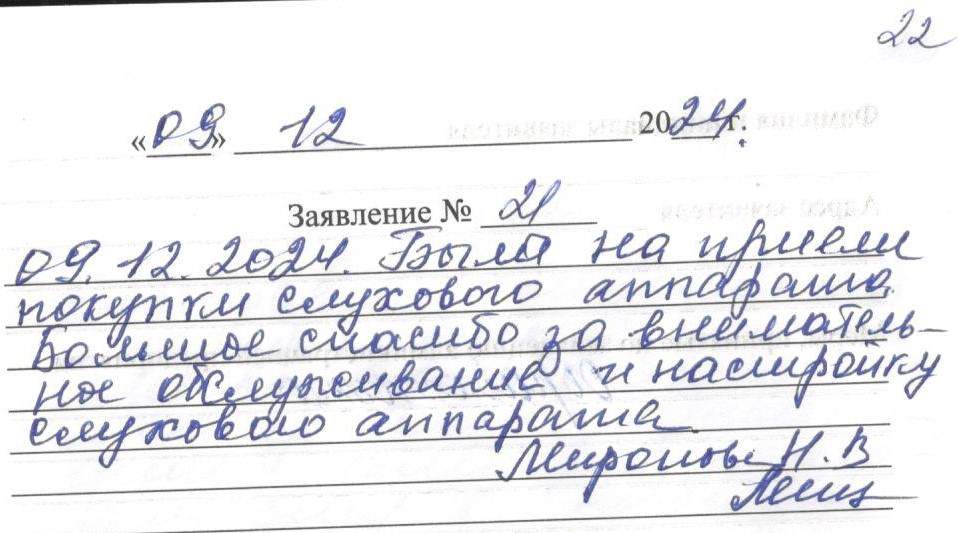 22
«09» 12 2024 г.
Заявление № 21
09.12.2024. Была на прием
покупки слухового аппарата.
Большое спасибо за вниматель-
ное обслуживание и настройку
слухового аппарата
Н. В